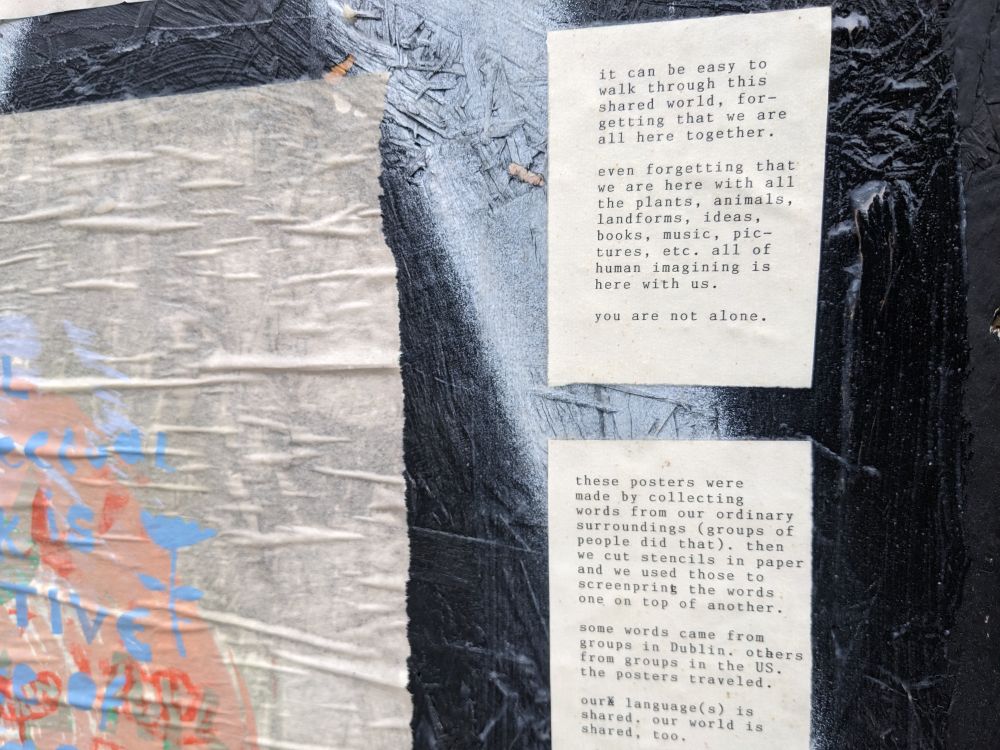 it can be easy to
walk through this
shared world, for-
getting that we are
all here together.
even forgetting that
we are here with all
the plants, animals,
landforms, ideas,
books, music, pic-
tures, etc. all of
human imagining is
here with us.
you are not alone.
these posters were
made by collecting
words from our ordinary
surroundings (groups of
people did that). then
we cut stencils in paper
and we used those to
screenprint the words
one on top of another.
some words came from
groups in Dublin. others
from groups in the US.
the posters traveled.
our language(s) is
shared. our world is
shared, too.
is
TIVE